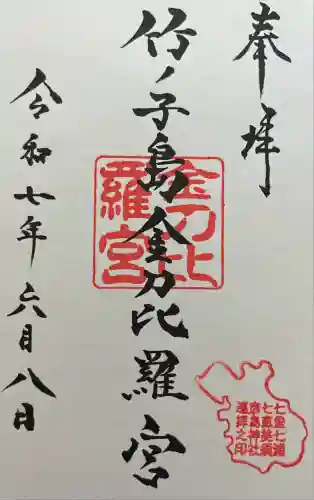 奉拝
竹ノ子島金刀比羅宮
金刀比
羅宮
令和七年六月八日
七里七浦
七恵美須
彦島神社
巡拝之印